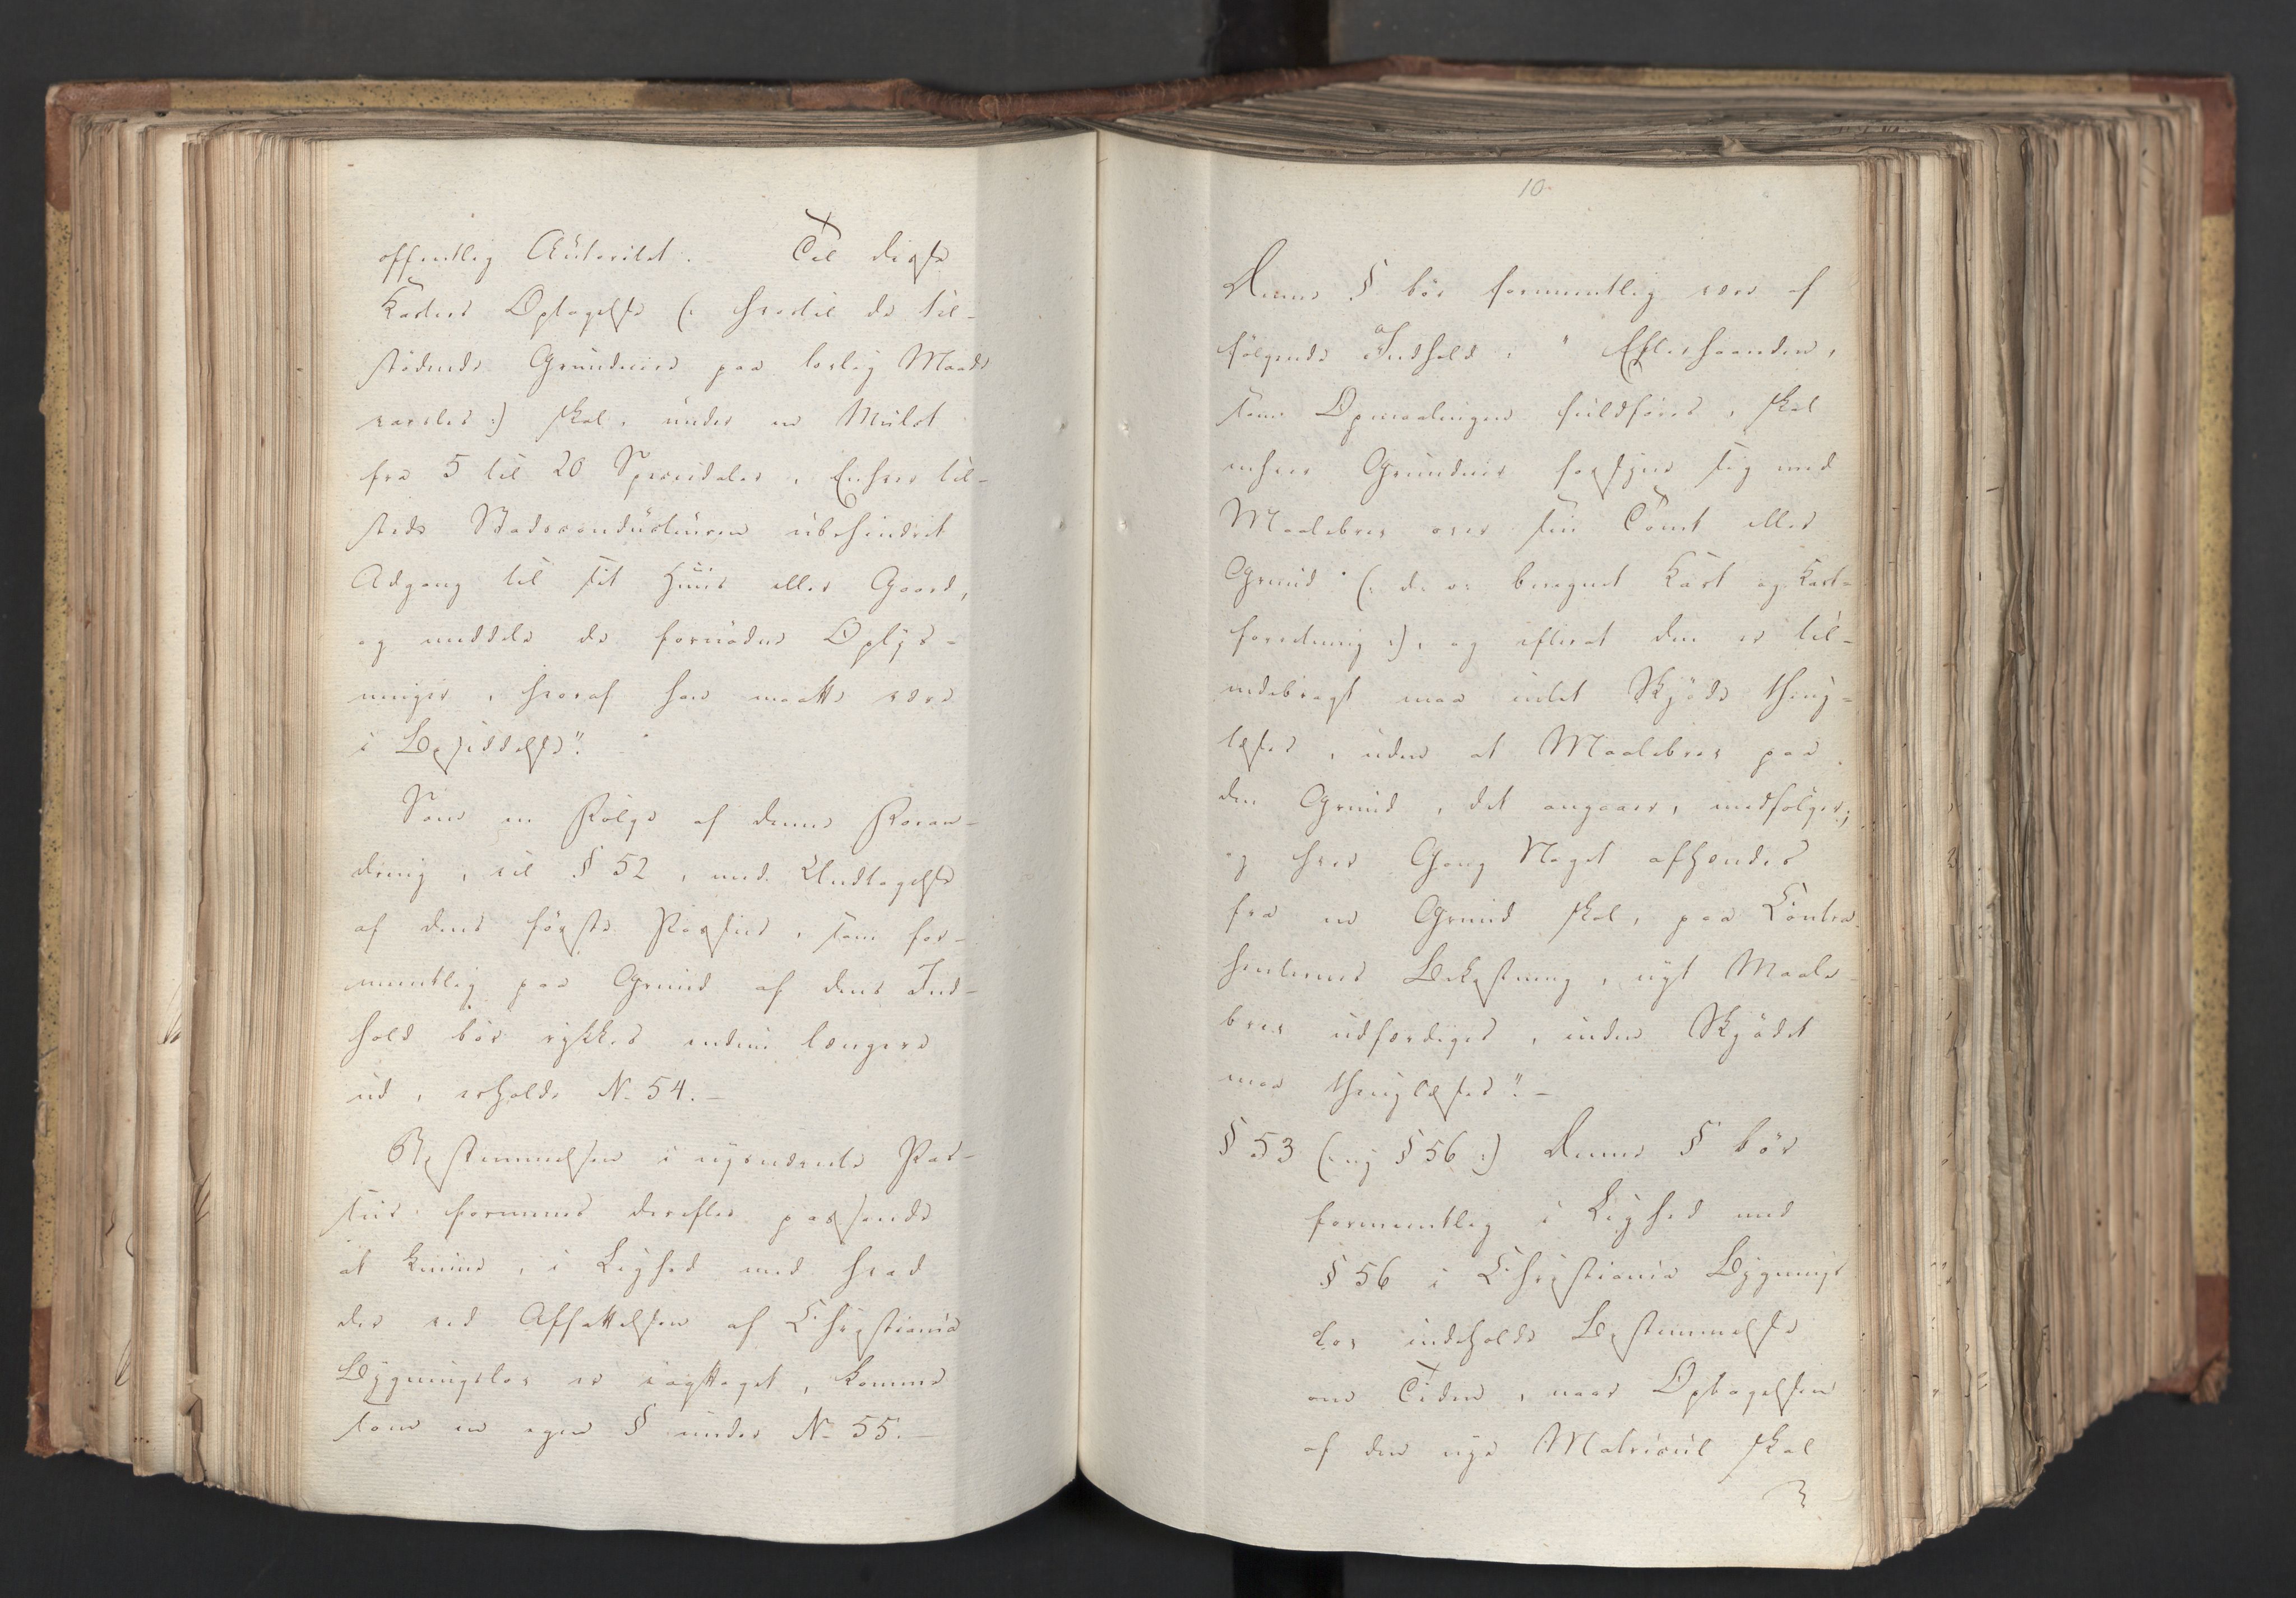 offentlig Autoritet. Til disse
Karters Optagelse (: hvortil de til-
stødende Grundeiere paa lovlig Maade
varsles :) skal, under en Mulct
fra 5 til 20 Speciedaler, Enhver til-
stede Stadsconducteuren ubehindret
Adgang til sit Huus eller Gaard,
og meddele de fornødne Oplys-
ninger, hvoraf han maatte være
i Besiddelse".
Som en Følge af denne Foran-
dring, vil § 52, med Undtagelse
af dens første Passus, som for-
mentlig paa Grund af dens Ind-
hold bør rykkes endnu længere
ud, erholde No 54. –
Bestemmelsen i nysnævnte Pas-
sus formenes derefter passende
at kunne, i Lighed med hvad
der ved Affattelsen af Christiania
Bygningslov er iagttaget, komme
som en egen § under No 55. –
10
Denne § bør formentlig være af
følgende Indhold: "Efterhaanden,
som Opmaalingen fuldføres, skal
enhver Grundeier forsyne sig med
Maalebrev over sin Tomt eller
Grund (: d. e. beregnet Kart og Kart-
forretning :), og efterat den er til-
endebragt maa intet Skjøde thing-
læses, uden at Maalebrev paa
den Grund, det angaaer, medfølger;
og hver Gang Noget afhændes
fra en Grund skal, paa Contra-
henternes Bekostning, nyt Maale-
brev udfærdiges, inden Skjødet
maa thinglæses". –
§ 53 (: ny § 56 :) Denne § bør
formentlig i Lighed med
§ 56 i Christiania Bygnings
Lov indeholde Bestemmelse
om Tiden, naar Optagelsen
af den nye Matricul skal
3